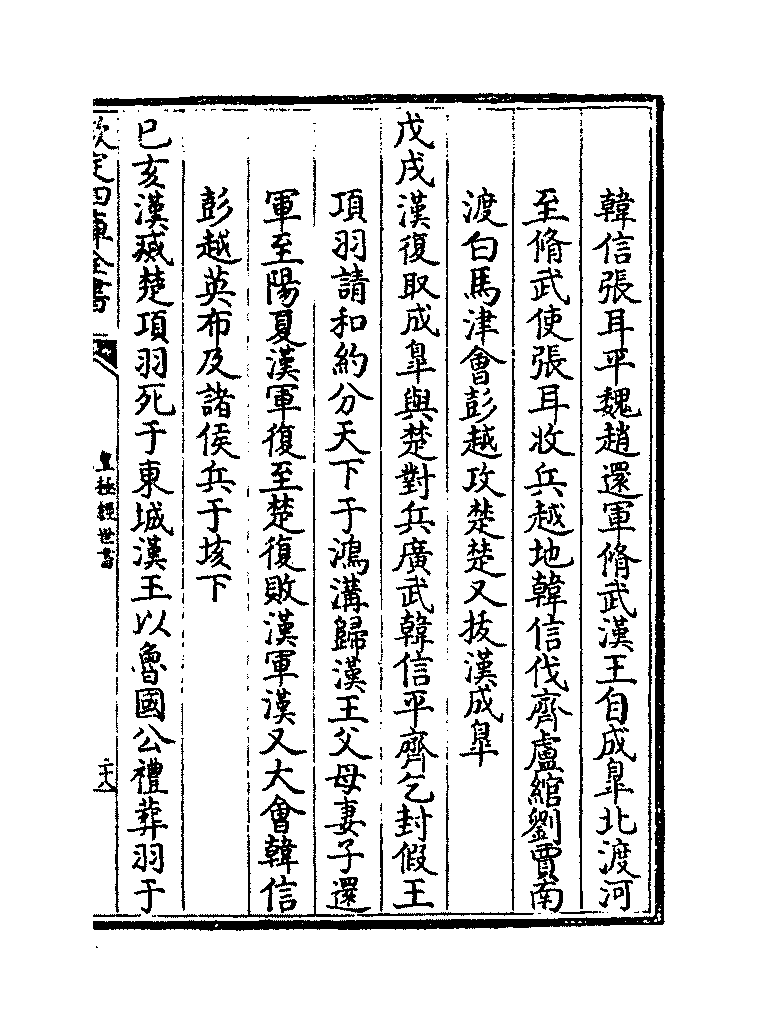 韓信張耳平魏趙還軍脩武漢王自成臯北渡河
至脩武使張耳收兵越地韓信伐齊盧綰劉賈南
渡白馬津會彭越攻楚楚又拔漢成臯
戊戌漢復取成臯與楚對兵廣武韓信平齊乞封假王
項羽請和約分天下于鴻溝歸漢王父母妻子還
軍至陽夏漢軍復至楚復敗漢軍漢又大會韓信
彭越英布及諸侯兵于垓下
己亥漢㓕楚項羽死于東城漢王以魯國公禮葬羽于
欽定四庫全書
皇極經世書
二十八